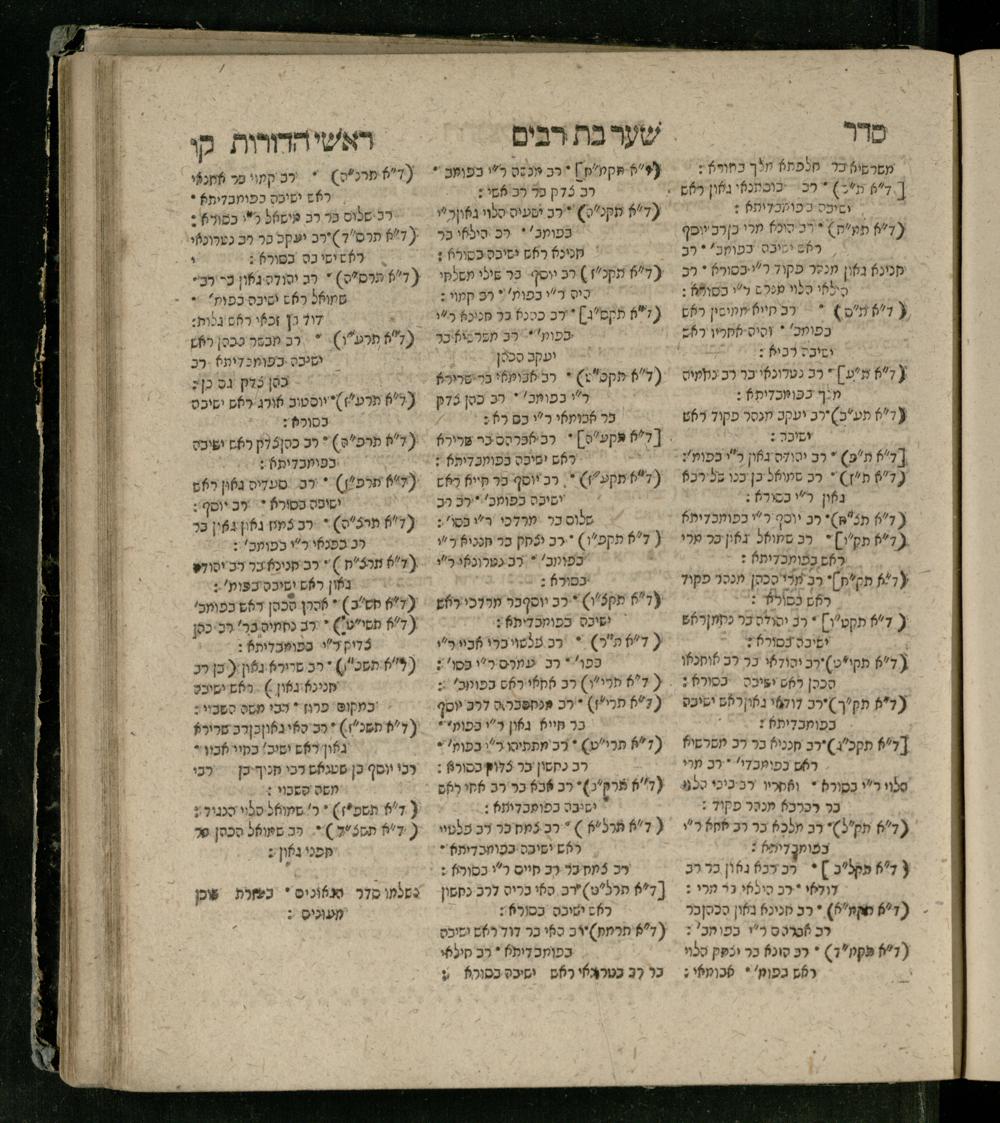 סדר שער בת רבים ראשי הדורות קו
משרשיא בר תחלפתא מלך בסורא :
[ד"א ת"ב) * רב בוסתנאי גאון ראש
ישיבה בפומבדיתא :
(ד"א תמ"ח) * רב הונא מרי בן רב יוסף
ראש ישיבה בפומב' * רב
חנינא גאון מנהר פקוד ר"י בסורא * רב
הילאי הלוי מנרש ר"י בסורא :
(ד"א ת"ס) * רב חייא ממישין ראש
בפומב' * והיה אחריו ראש
ישיבה רביא :
(ד"א ת"ע] * רב נטרונאי בר רב נחמיה
מלך בפומבדיתא :
(ד"א תע"ב) * רב יעקב מנהר פקוד ראש
ישיבה :
[ד"א ת"פ) * רב יהודה גאון ר"י בפומ' :
(ד"א ת"ץ) * רב שמואל בן בנו של רבא
גאון ר"י בסורא :
(ד"א תצ"ח) * רב יוסף ר"י בפומבדיתא
(ד"א תק"ו] * רב שמואל גאון בר מרי
ראש בפומבדיתא :
(ד"א תק"ח] * רב מרי הכהן מנהר פקוד
ראש בסורא :
(ד"א תקט"ו] * רב יהודה בר נחמן ראש
ישיבה בסורא :
(ד"א תקי"ט) * רב יהודאי בר רב אוחנאו
הכהן ראש ישיבה בסורא :
(ד"א תק"ך) * רב דודאי גאון ראש ישיבה
בפומבדיתא :
[ד"א תקכ"ג) * רב חנניא בר רב משרשיא
ראש בפומבדי' * רב מרי
הלוי ר"י בסורא * ואחריו רב ביבי הלוי
בר רברבא מנהר פקוד :
(ד"א תק"ל) * רב מלכא בר רב אחא ר"י
בפומבדיתא :
(ד"א תקל"ב] * רב רבא גאון בר רב
דודאי * רב הילאי בר מרי :
(ד"א תקמ"א) * רב חנינא גאון הכהן בר
רב אברהם ר"י בפומב' :
(ד"א תקמ"ד) * רב הונא בר יצחק הלוי
ראש בפומ' * אבומאי :
(ד"א תקמ"ח] * רב מנשה ר"י בפומב' *
רב צדק בר רב אשי :
(ד"א תקנ"ה) * רב ישעיה הלוי גאון ר"י
בפומב' * רב הילאי בר
חנינא ראש ישיבה בסורא :
(ד"א תקנ"ז) רב יוסף בר שילי משלחי
היה ר"י בפומ' * רב קמוי :
(ד"א תקס"ג] * רב כהנא בר חנינא ר"י
בפומ' * רב משרשיא בר
יעקב הכהן
(ד"א תקס"ה) * רב אבומאי בר שרירא
ר"י בפומב' * רב כהן צדק
בר אבומאי ר"י בסורא :
[ד"א תקע"ה] * רב אברהם בר שרירא
ראש ישיבה בפומבדיתא :
(ד"א תקע"ו) * רב יוסף בר חייא ראש
ישיבה בפומב' * רב רב
שלום בר מרדכי ר"י בסו' :
(ד"א תקפ"ו) * רב יצחק בר חנניא ר"י
בפומב' * רב נטרונאי ר"י
בסורא :
(ד"א תקצ"ו) * רב יוסף בר מרדכי ראש
ישיבה בפומבדיתא :
(ד"א ת"ר) * רב פלטוי ברי אביי ר"י
בפו' * רב עמרם ר"י בסו' :
(ד"א תרי"ו) רב אחאי ראש בפומב' :
(ד"א תרי"ז) * רב מנחם ברה דרב יוסף
בר חייא גאון ר"י בפומ' *
(ד"א תרי"ט) * רב מתתיהו ר"י בפומ' *
רב נחשון בר צדוק בסורא :
(ד"א תרק"ב) * רב אבא בר רב אחי ראש
ישיבה בפומבדיתא :
(ד"א תרל"א) * רב צמח בר רב פלטוי
ראש ישיבה בפומבדיתא *
רב צמח בר רב חיים ר"י בסורא :
[ד"א תרל"ט) * רב האי בריה דרב נחשון
ראש ישיבה בסורא :
(ד"א תרמח) * רב האי בר דוד ראש ישיבה
בפומבדיתא * רב הילאי
בר רב נטרונאי ראש ישיבה בסורא :
(ד"א תרנ"ה) * רב קמוי בר אחנאי
ראש ישיבה בפומבדיתא *
רב שלום בר רב מישאל ר"י בסורא :
(ד"א תרס"ד) * רב יעקב בר רב נטרונאי
ראש ישיבה בסורא :
(ד"א תרס"ה) * רב יהודה גאון בר רב *
שמואל ראש ישיבה בפומ' *
דוד בן זכאי ראש גלות :
(ד"א תרע"ו) * רב מבשר בכהן ראש
ישיבה בפומבדיתא רב
כהן צדק גם כן :
(ד"א תרע"ז) * יוסטוב אורג ראש ישיבה
בסורא :
(ד"א תרפ"ה) * רב כהן צדק ראש ישיבה
בפומבדיתא :
(ד"א תרפ"ז) * רב סעדיה גאון ראש
ישיבה בסורא * רב יוסף :
(ד"א תרצ"ה) * רב צמח גאון גאון בר
רב כפנאי ר"י בפומב' :
(ד"א תרצ"ח) * רב חנינא בר רב יהודה
גאון ראש ישיבה בפומ' :
(ד"א תש"ב) * אהרן הכהן ראש בפומב'
(ד"א תשי"ט) * רב נחמיה בר' רב כהן
צדיק ר"י בפומבדיתא :
(ד"א תשכ"ו) * רב שרירא גאון (בן רב
חנינא גאון) ראש ישיבה
במקום פרוז * רבי משה השבוי :
(ד"א תשנ"ז) * רב האי גאון בן רב שרירא
גאון ראש ישיב' בחיי אביו *
רבי יוסף בן שטנאש רבי חניך בן רבי
משה השבוי :
(ד"א תשפ"ז) * ר' שמואל הלוי הנגיד :
(ד"א תשצ"ד) * רב שמואל הכהן בר
חפני גאון :
נשלמו סדר הגאונים * בעזרת שוכן
מעונים :